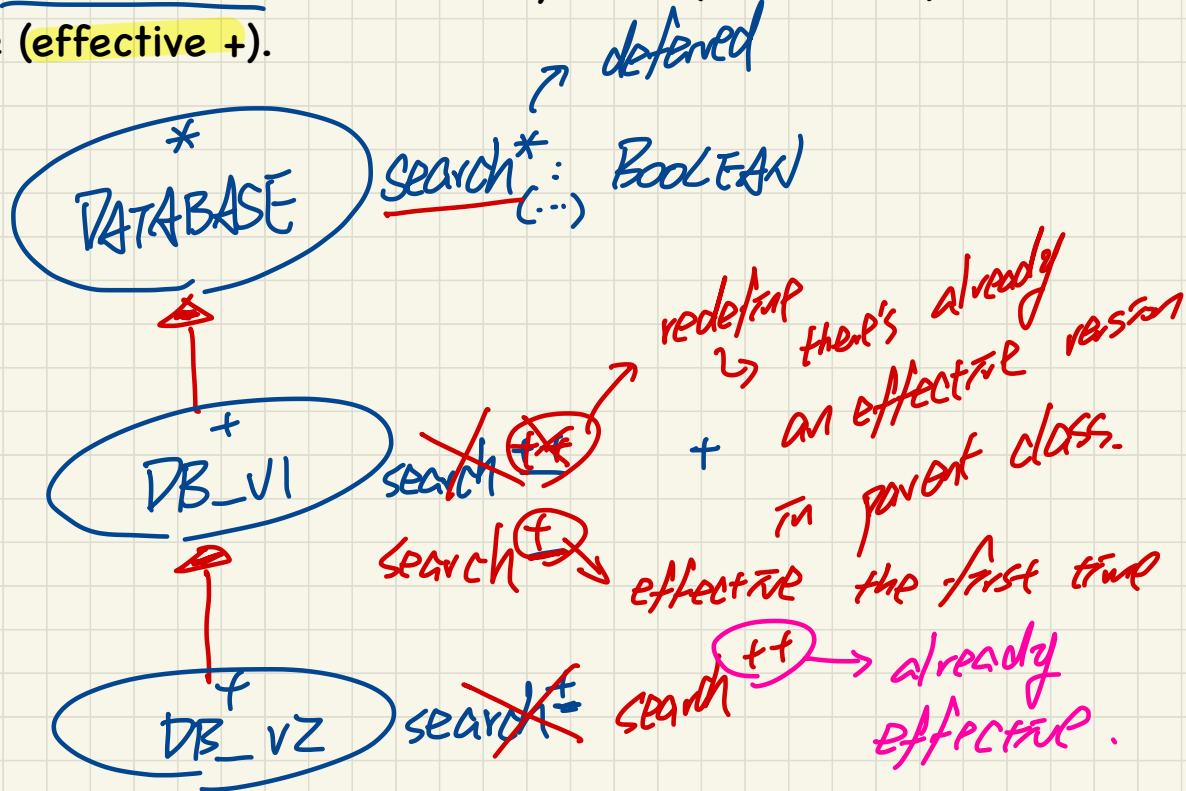 (effective +).
deferred
*
DATABASE
search* : BOOLEAN
(...)
redefine
there's already
an effective version
in parent class.
+
DB_V1
search ++
+
search +
effective the first time
+
DB_V2
search +
search ++
already
effective.